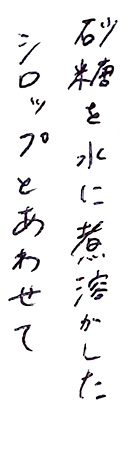 砂糖を水に煮溶かした
シロップとあわせて